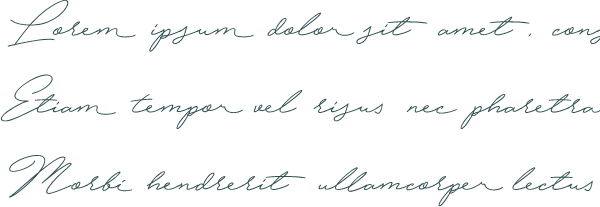 Lorem ipsum dolor sit amet, cons
Etiam tempor vel risus nec pharetra
Morbi hendrerit ullamcorper lectus